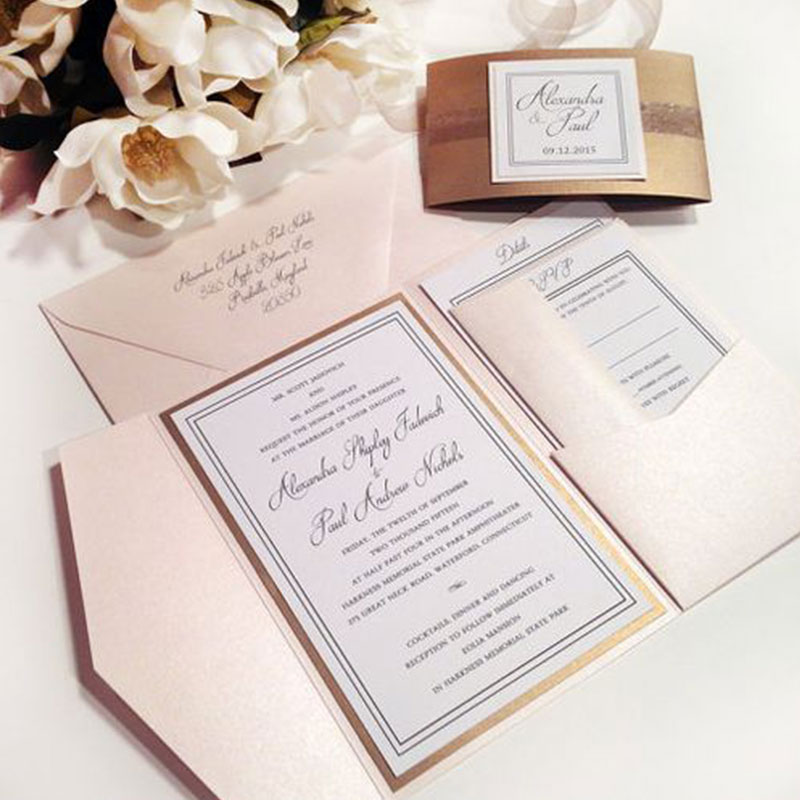 Alexandra
& Paul
09.12.2015
Alexandra Fadovich & Paul Nichols
Apple Blossom Lane
20850
Details
RSVP
WITH PLEASURE
WITH REGRET
MR. SCOTT JADOVICH
AND
MS. ALISON SHIPLEY
REQUEST THE HONOR OF YOUR PRESENCE
AT THE MARRIAGE OF THEIR DAUGHTER
Alexandra Shipley Fadovich
&
Paul Andrew Nichols
FRIDAY, THE TWELTH OF SEPTEMBER
TWO THOUSAND FIFTEEN
AT HALF PAST FOUR IN THE AFTERNOON
HARKNESS MEMORIAL STATE PARK AMPHITHEATER
275 GREAT NECK ROAD, WATERFORD, CONNECTICUT
COCKTAILS, DINNER AND DANCING
RECEPTION TO FOLLOW IMMEDIATELY AT
EOLIA MANSION
IN HARKNESS MEMORIAL STATE PARK